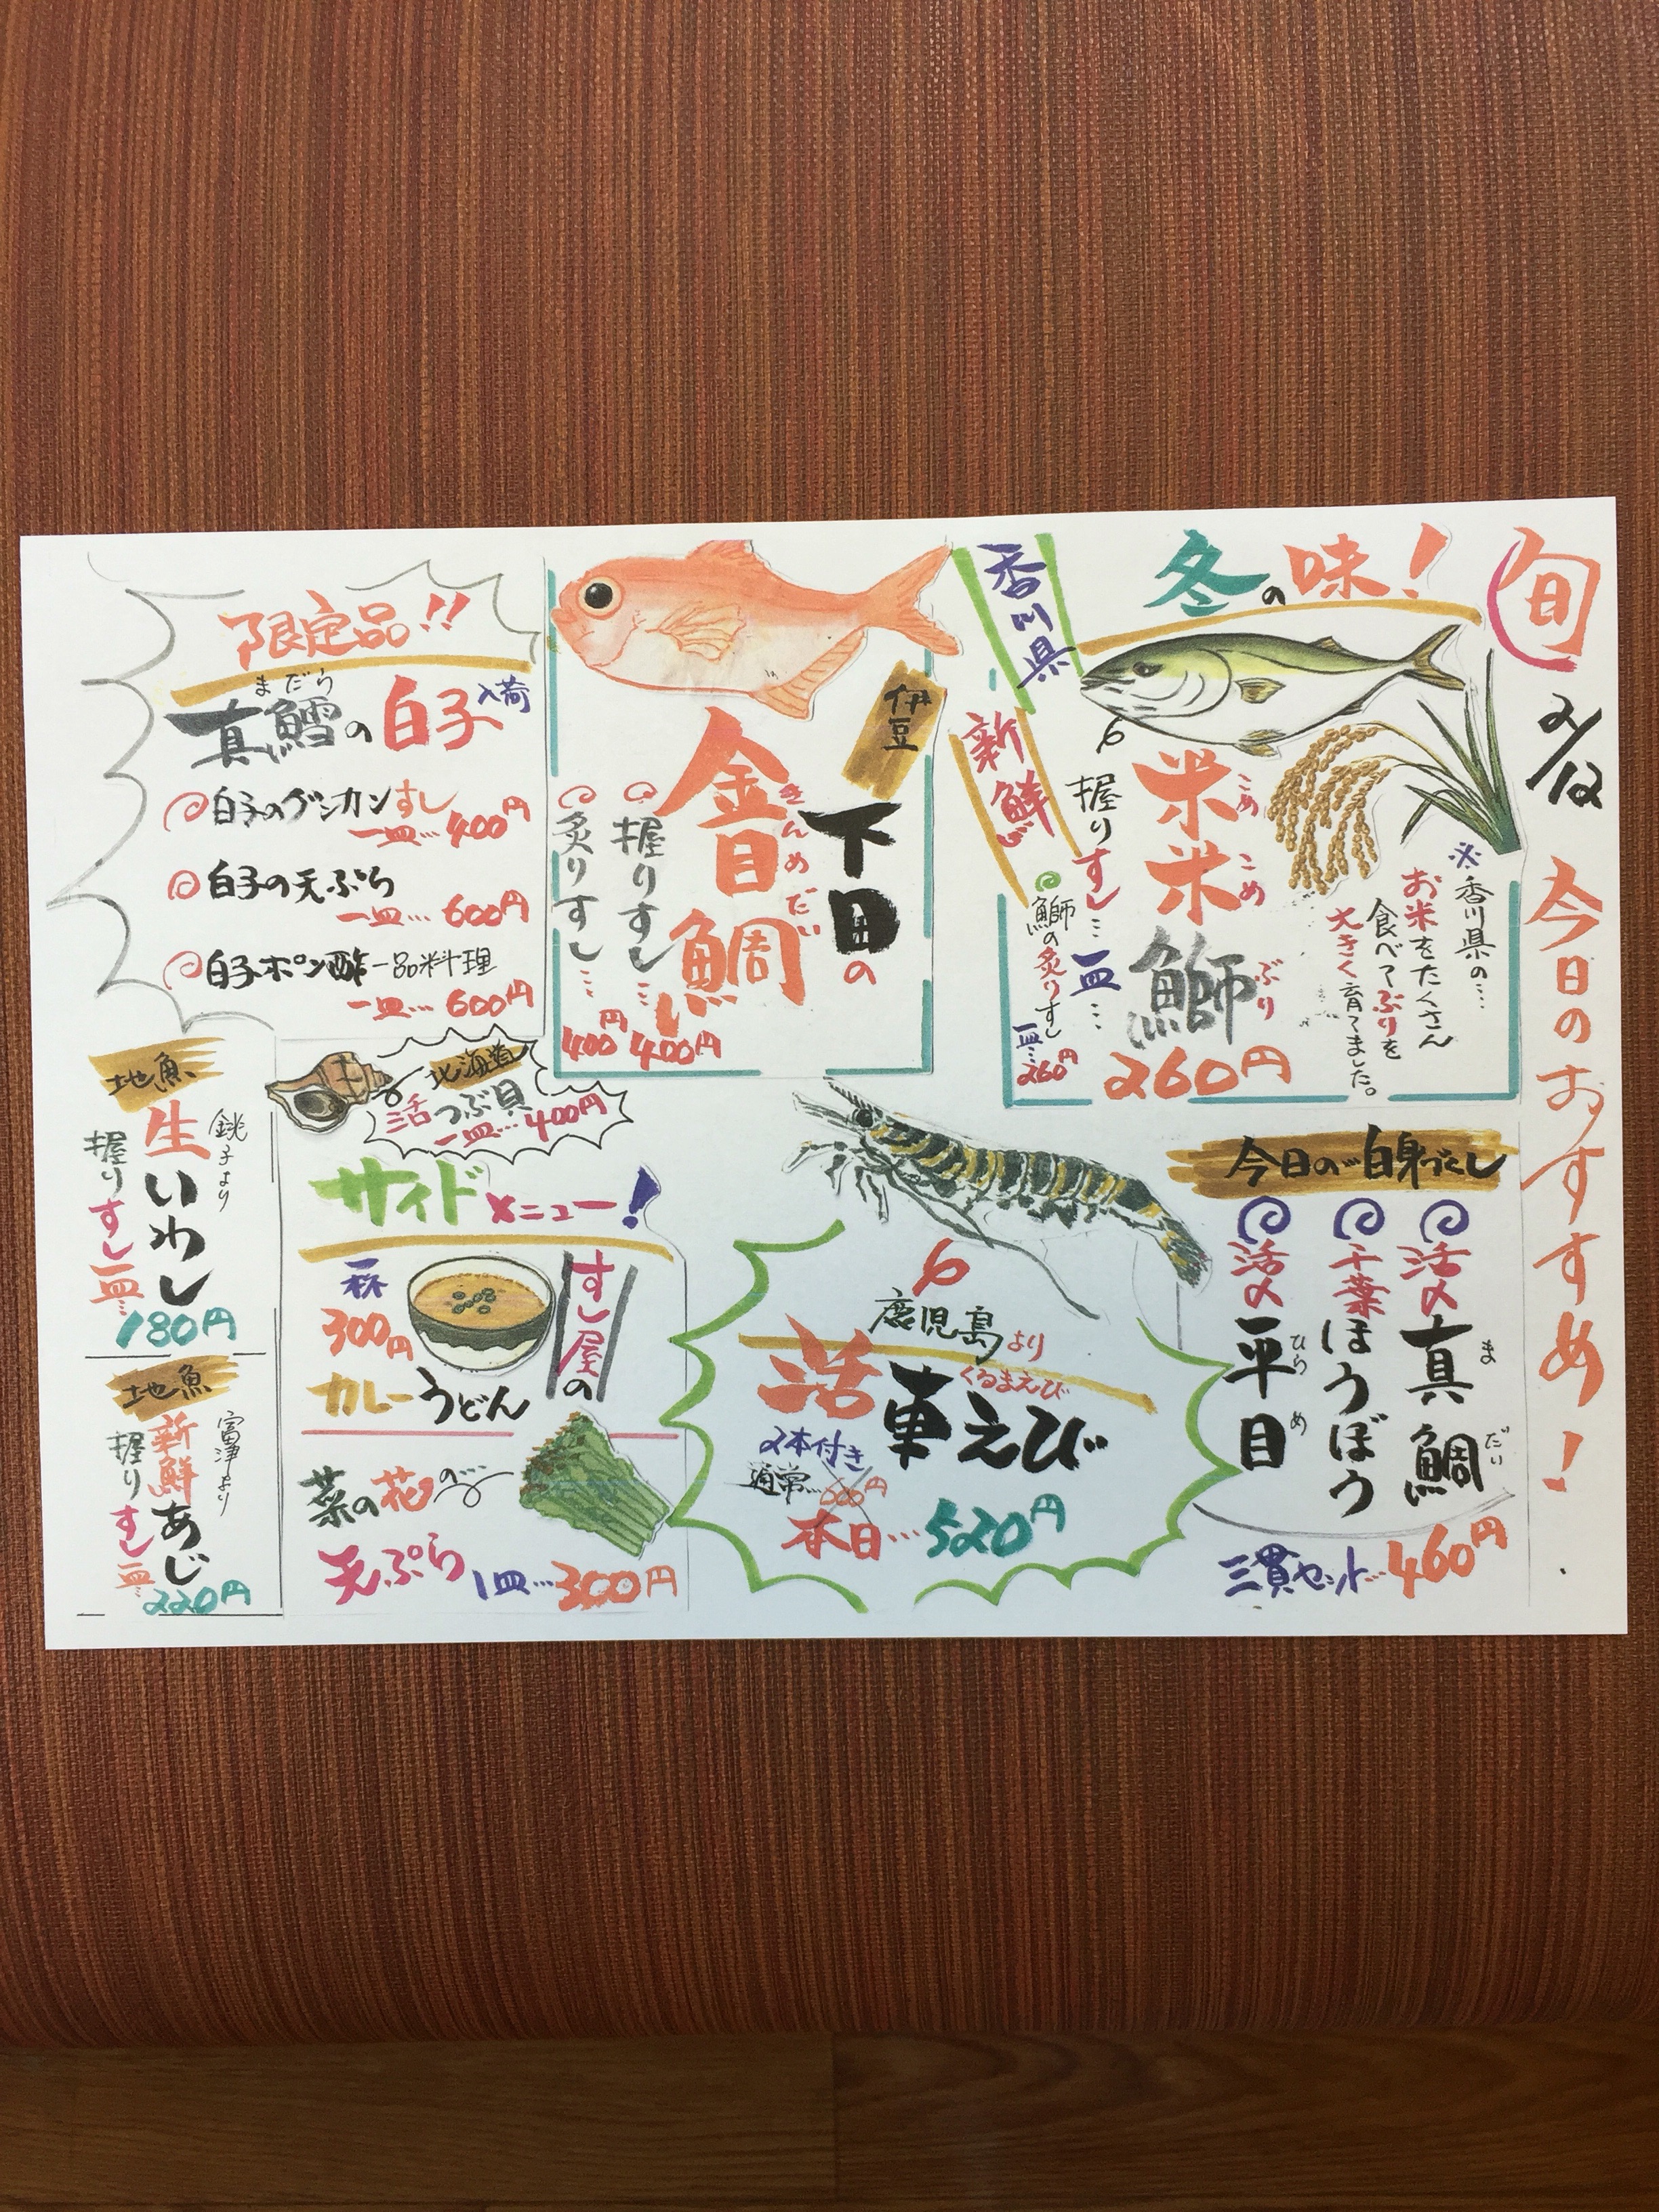 旬
2/12
今日のおすすめ!
冬の味!
香川県
新鮮
米米鰤
こめこめぶり
握りすし…一皿…
260円
鰤の炙りすし
一皿…260円
※香川県の…
お米をたくさん
食べてぶりを
大きく育てました。
伊豆
下田の
金目鯛
きんめだい
握りすし…400円
炙りすし…400円
限定品!!
まだら
真鱈の白子入荷
白子のグンカンすし
一皿…400円
白子の天ぷら
一皿…600円
白子ポン酢一品料理
一皿…600円
今日の…白身づくし
活〆真鯛
まだい
千葉ほうぼう
活〆平目
ひらめ
三貫セット…460円
鹿児島より
くるまえび
活車えび
2本付き
通常…600円
本日…520円
北海道
活つぶ貝
一皿…400円
サイドメニュー!
すし屋の
カレーうどん
一杯
300円
菜の花の…
天ぷら 1皿…300円
地魚
銚子より
生いわし
握りすし一皿…
180円
地魚
富津より
新鮮あじ
握りすし一皿…
220円